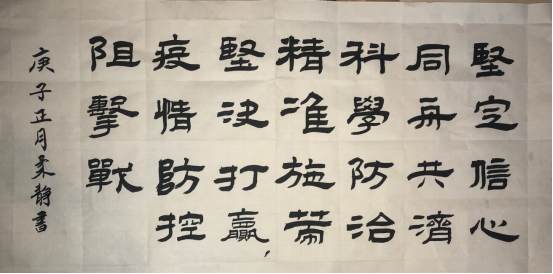 堅定信心
同舟共濟
科學防治
精准施策
堅決打贏
疫情防控
阻擊戰
庚子正月柔靜書